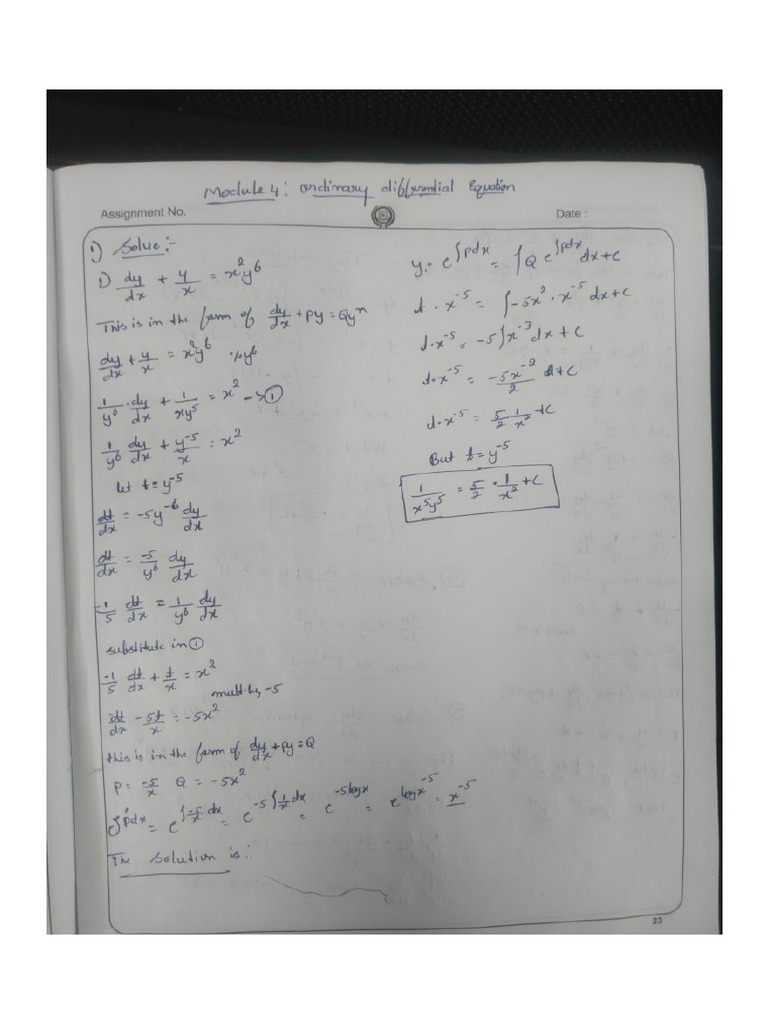 Module 4: ordinary differential Equation
Assignment No.
Date :
1) Solve:-
1) dy/dx + y/x = x²y⁶
This is in the form of dy/dx + py = Qyⁿ
dy/dx + y/x = x²y⁶ ÷ by y⁶
1/y⁶ · dy/dx + 1/xy⁵ = x² -> ①
1/y⁶ dy/dx + y⁻⁵/x = x²
let t = y⁻⁵
dt/dx = -5y⁻⁶ dy/dx
dt/dx = -5/y⁶ dy/dx
-1/5 dt/dx = 1/y⁶ dy/dx
substitute in ①
-1/5 dt/dx + t/x = x²
mult by -5
dt/dx - 5t/x = -5x²
this is in the form of dy/dx + py = Q
P = -5/x Q = -5x²
e^∫pdx = e^∫-5/x dx = e^-5∫1/x dx = e^-5logx = e^logx⁻⁵ = x⁻⁵
The solution is:
y. e^∫pdx = ∫Q e^∫pdx dx + C
t · x⁻⁵ = ∫-5x² · x⁻⁵ dx + C
t · x⁻⁵ = -5∫x⁻³ dx + C
t · x⁻⁵ = -5x⁻²/2 + C
t · x⁻⁵ = 5/2 1/x² + C
But t = y⁻⁵
1/x⁵y⁵ = 5/2 · 1/x² + C
23